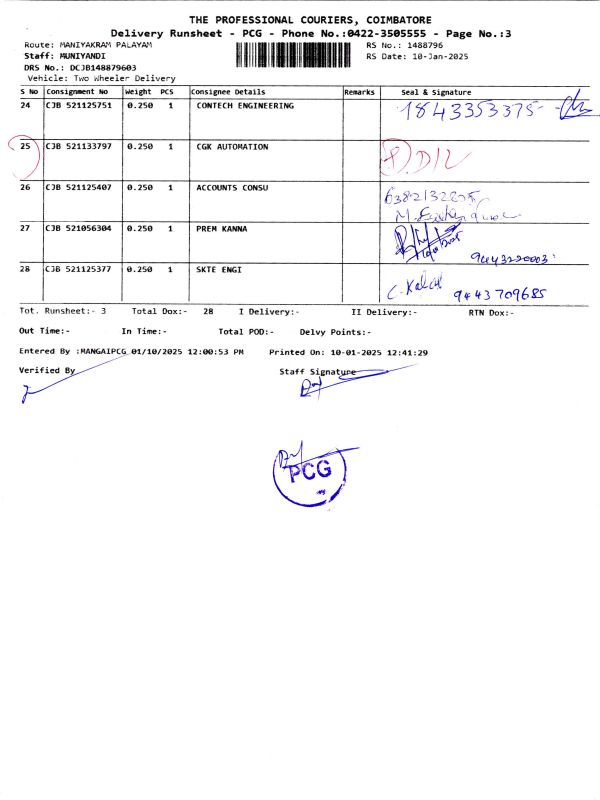 THE PROFESSIONAL COURIERS, COIMBATORE
Delivery Runsheet - PCG - Phone No.:0422-3505555 - Page No.:3
Route: MANIYAKRAM PALAYAM RS No.: 1488796
Staff: MUNIYANDI RS Date: 10-Jan-2025
DRS No.: DCJB148879603
Vehicle: Two Wheeler Delivery
S No Consignment No Weight PCS Consignee Details Remarks Seal & Signature
24 CJB 521125751 0.250 1 CONTECH ENGINEERING
25 CJB 521133797 0.250 1 CGK AUTOMATION
26 CJB 521125407 0.250 1 ACCOUNTS CONSU
27 CJB 521056304 0.250 1 PREM KANNA 9443220003
28 CJB 521125377 0.250 1 SKTE ENGI 9443709685
Tot. Runsheet:- 3 Total Dox:- 28 I Delivery:- II Delivery:- RTN Dox:-
Out Time:- In Time:- Total POD:- Delvy Points:-
Entered By :MANGAIPCG 01/10/2025 12:00:53 PM Printed On: 10-01-2025 12:41:29
Verified By Staff Signature
PCG